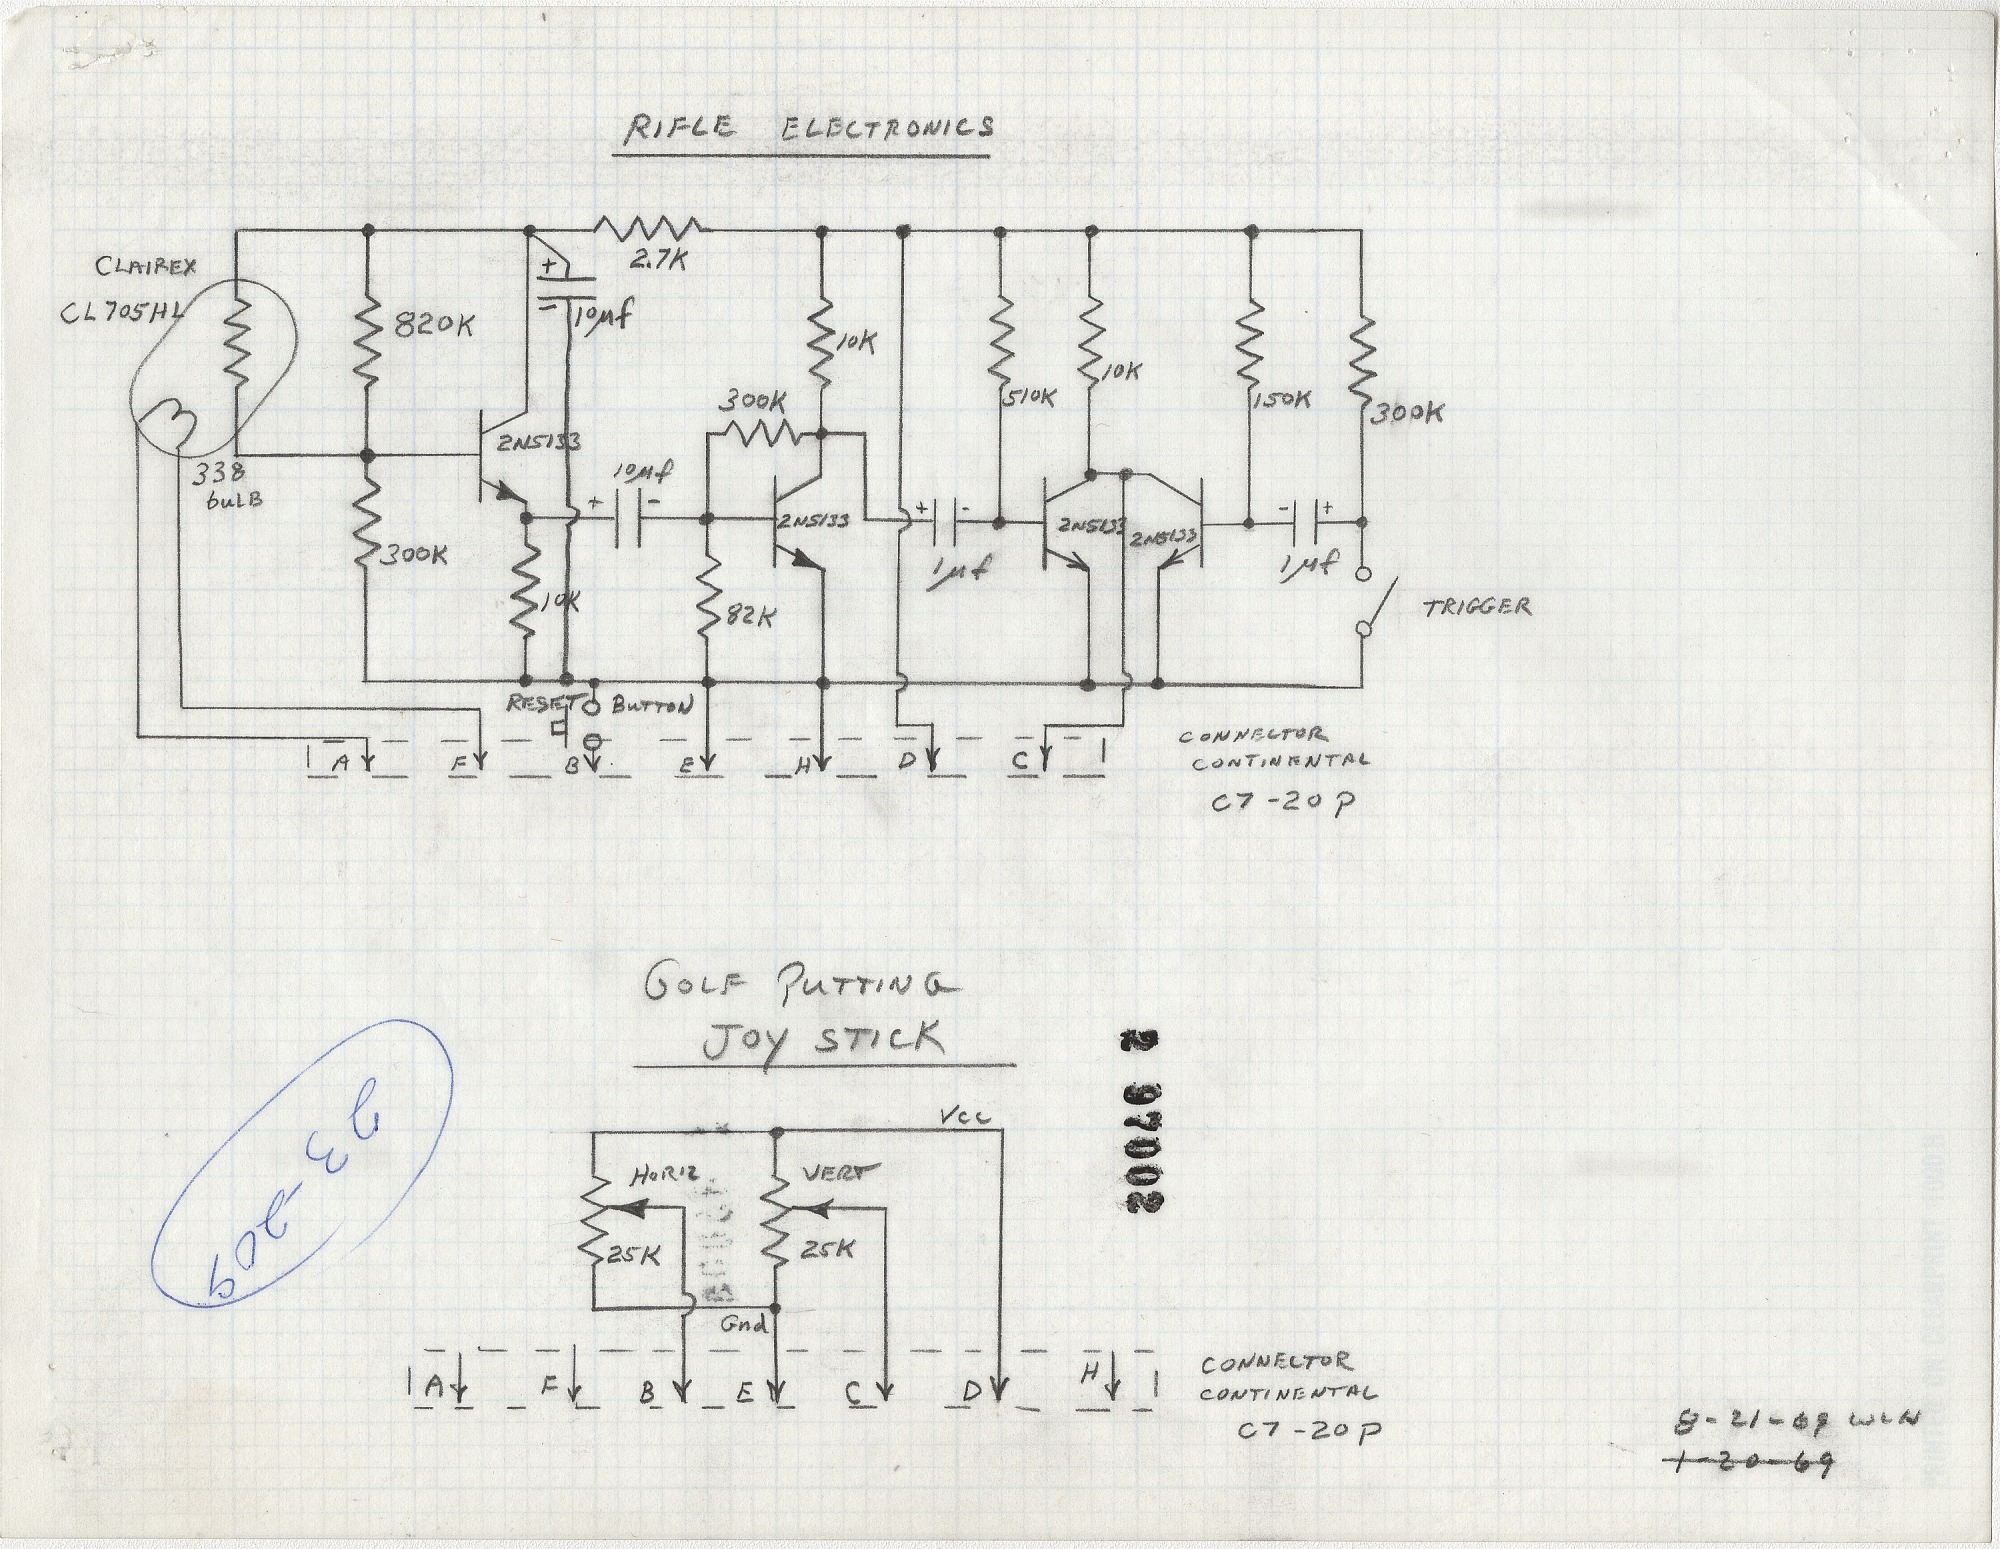 RIFLE ELECTRONICS
CLAIREX
CL705HL
338
bulB
820K
300K
2N5133
+
-
10µf
2.7K
10K
+ 10µf -
300K
82K
10K
2N5133
+ -
1µf
510K
10K
2N5133
2N5133
150K
300K
- +
1µf
TRIGGER
RESET BUTTON
A F B E H D C
CONNECTOR
CONTINENTAL
C7-20P
GOLF PUTTING
JOY STICK
Vcc
HORIZ
25K
VERT
25K
Gnd
A F B E C D H
CONNECTOR
CONTINENTAL
C7-20P
2 97002
8-21-69 WLN
1-20-69